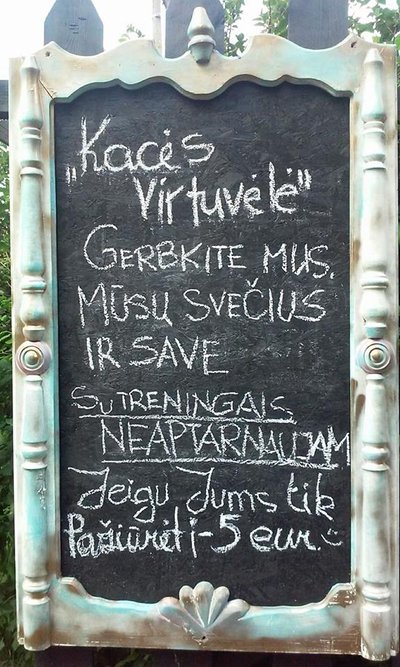 „Kacės
Virtuvėlė"
GERBKITE MUS,
MŪSŲ SVEČIUS
IR SAVE
SU TRENINGAIS
NEAPTARNAUJAM
Jeigu Jums tik
Pažiūrėti-5 eur.